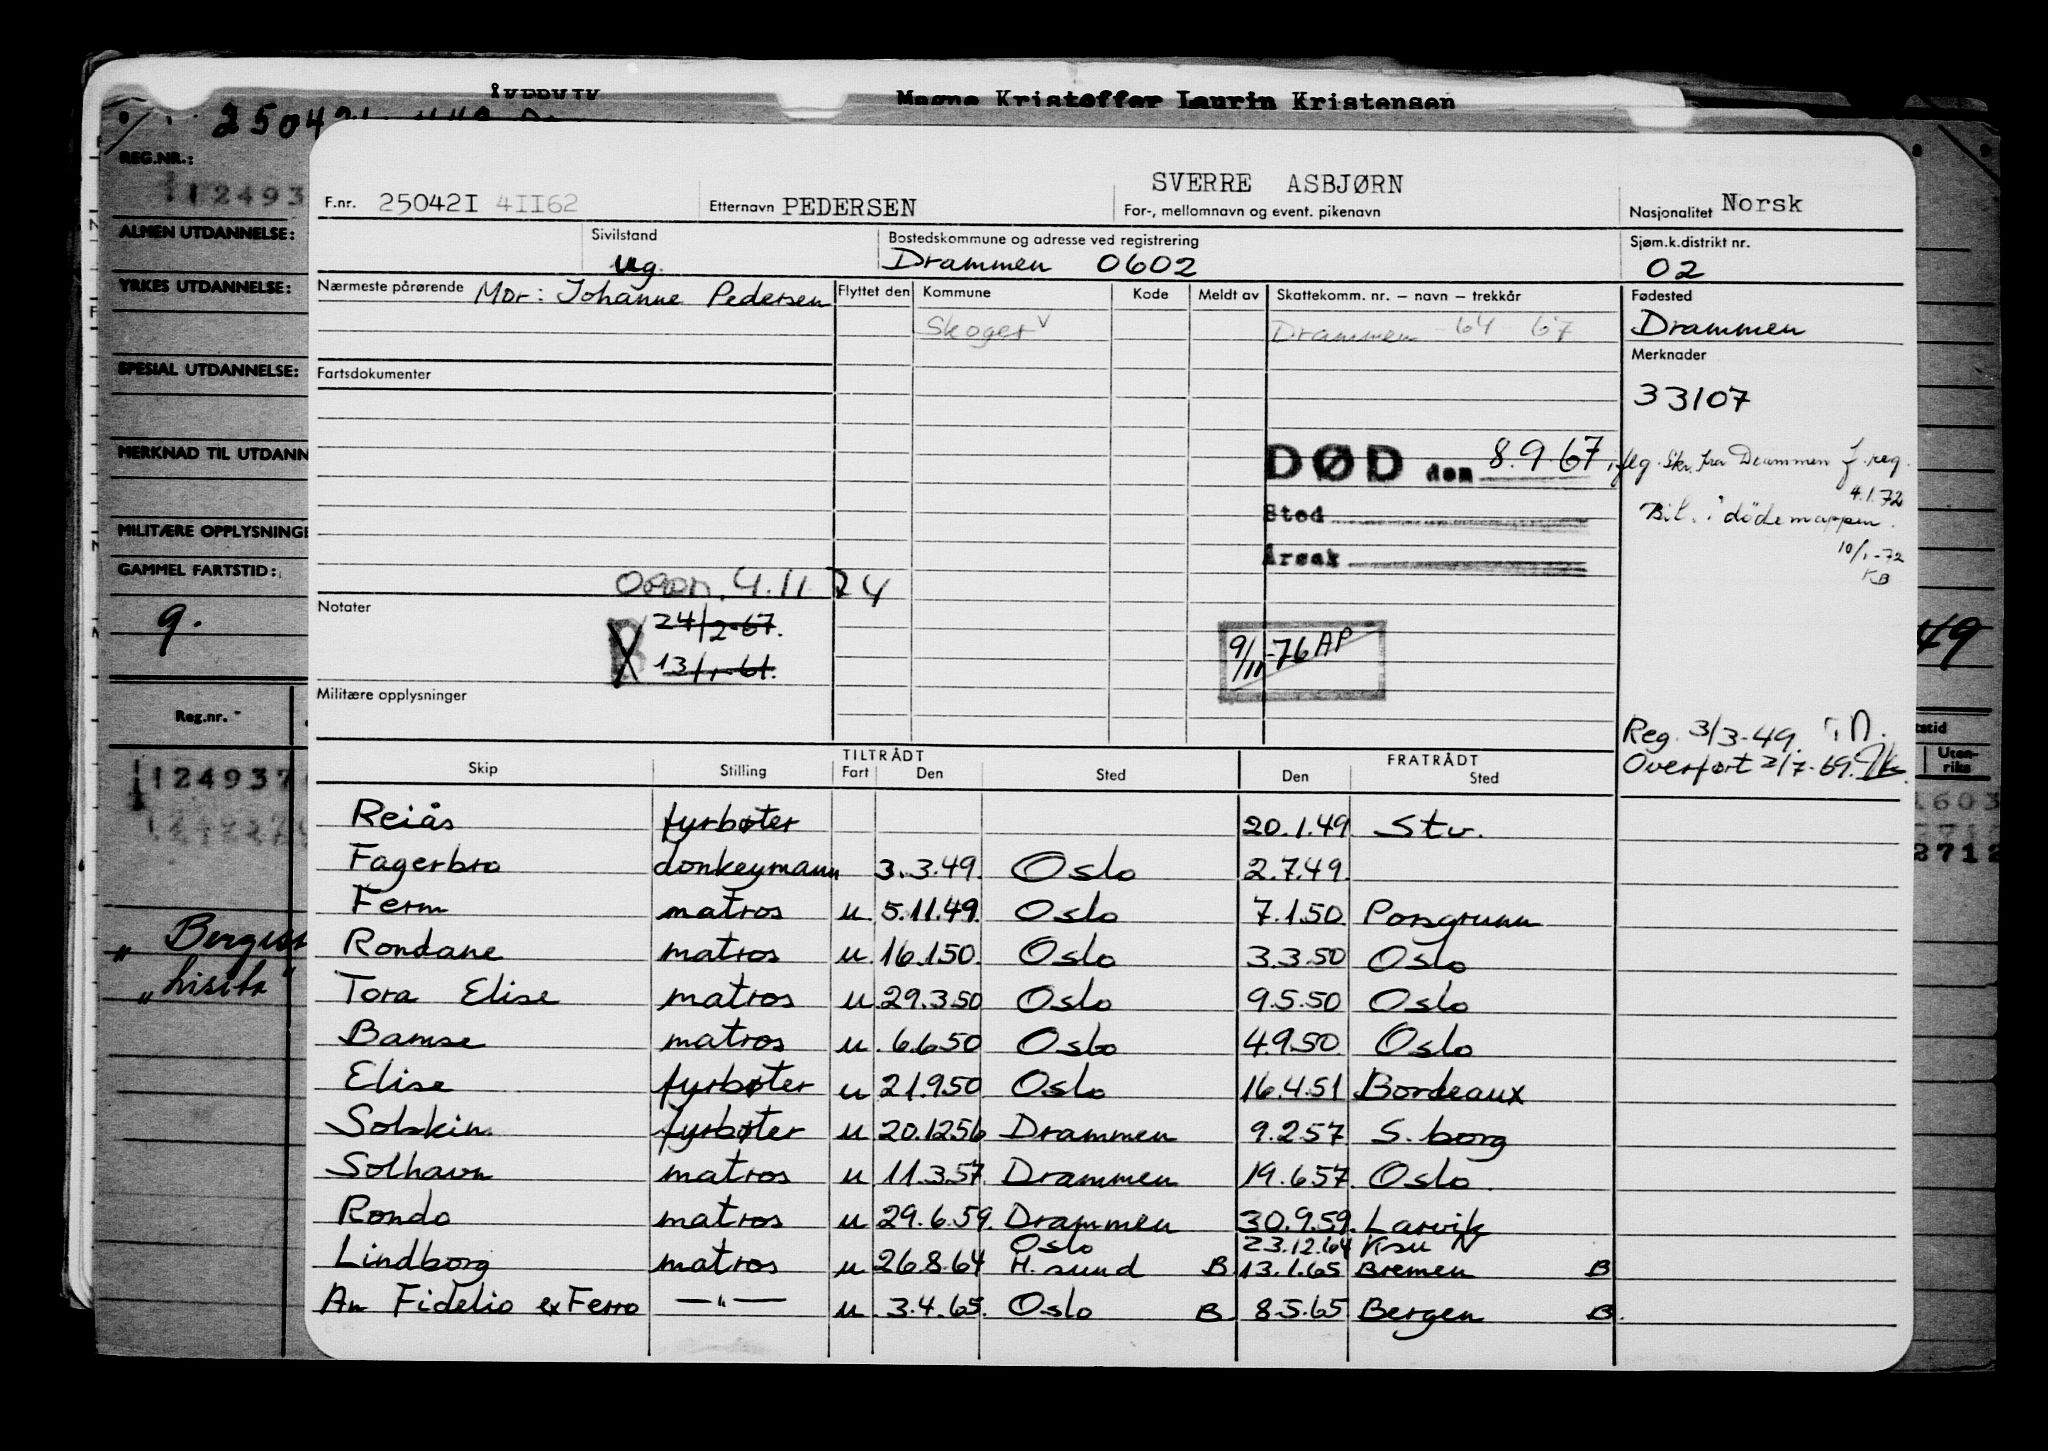 Magne Kristoffer Laurin Kristensen
REG.NR.:
112493
ALMEN UTDANNELSE:
YRKES UTDANNELSE:
SPESIAL UTDANNELSE:
MERKNAD TIL UTDANN
MILITÆRE OPPLYSNINGE
GAMMEL FARTSTID:
9.
Reg.nr.
1124937
49
Uten-
riks
1603
2712
F.nr. 250421 41162 Etternavn PEDERSEN SVERRE ASBJØRN For-, mellomnavn og event. pikenavn Nasjonalitet Norsk
Sivilstand ug. Bostedskommune og adresse ved registrering Drammen 0602 Sjøm.k.distrikt nr. 02
Nærmeste pårørende Mor: Johanne Pedersen Flyttet den Kommune Kode Meldt av Skattekomm. nr. – navn – trekkår Fødested
Skoger v Drammen 64 67 Drammen
Merknader
Fartsdokumenter
33107
DØD den 8.9.67, iflg. skr. fra Drammen f.reg.
4.1.72
Sted Bil. i dödemappen.
Årsak 10/1-72
KB
4.11.74
Notater
24/2-67.
13/1-61.
9/11-76 AP
Militære opplysninger
Reg. 3/3-49.
Overført 2/7-69.
TILTRÅDT FRATRÅDT
Skip Stilling Fart Den Sted Den Sted
Reiås fyrbøter 20.1.49 Stv.
Fagerbro donkeymann 3.3.49. Oslo 2.7.49.
Ferm matros u 5.11.49. Oslo 7.1.50. Porsgrunn
Rondane matros u 16.1.50. Oslo 3.3.50 Oslo
Tora Elise matros u 29.3.50 Oslo 9.5.50 Oslo
Bamse matros u 6.6.50 Oslo 4.9.50. Oslo
Elise fyrbøter u 21.9.50 Oslo 16.4.51 Bordeaux
Solskin fyrbøter u 20.12.56 Drammen 9.2.57 S.borg
Solhavn matros u 11.3.57. Drammen 19.6.57. Oslo
Rondo matros u 29.6.59. Drammen 30.9.59. Larvik
Oslo 23.12.64 Ksu N
Lindborg matros u 26.8.64 H.sund B 13.1.65 Bremen B
An Fidelio ex Ferro —"— u 3.4.65. Oslo B. 8.5.65 Bergen B.